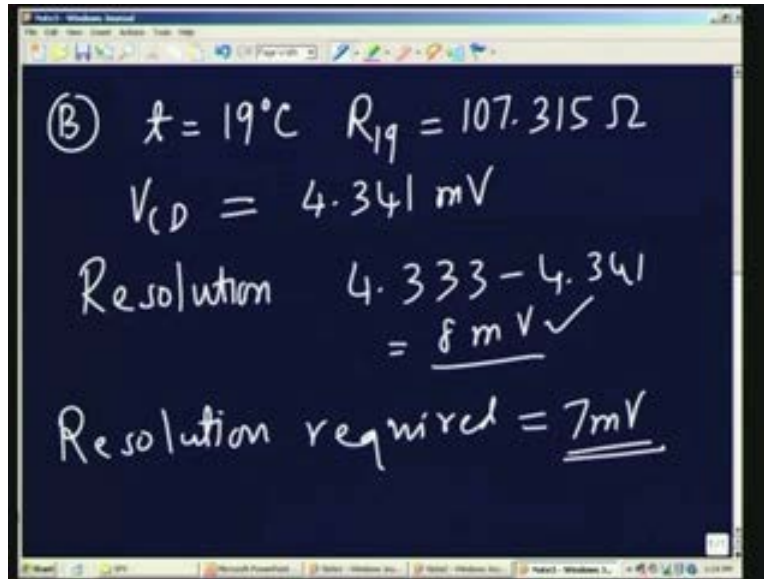 Note3 - Windows Journal
File Edit View Insert Actions Tools Help
Page Width
Ⓑ t = 19°C R₁₉ = 107.315 Ω
V_CD = 4.341 mV
Resolution 4.333 – 4.341
= 8 mV ✓
Resolution required = 7mV
1/1
Start
Microsoft PowerPoint